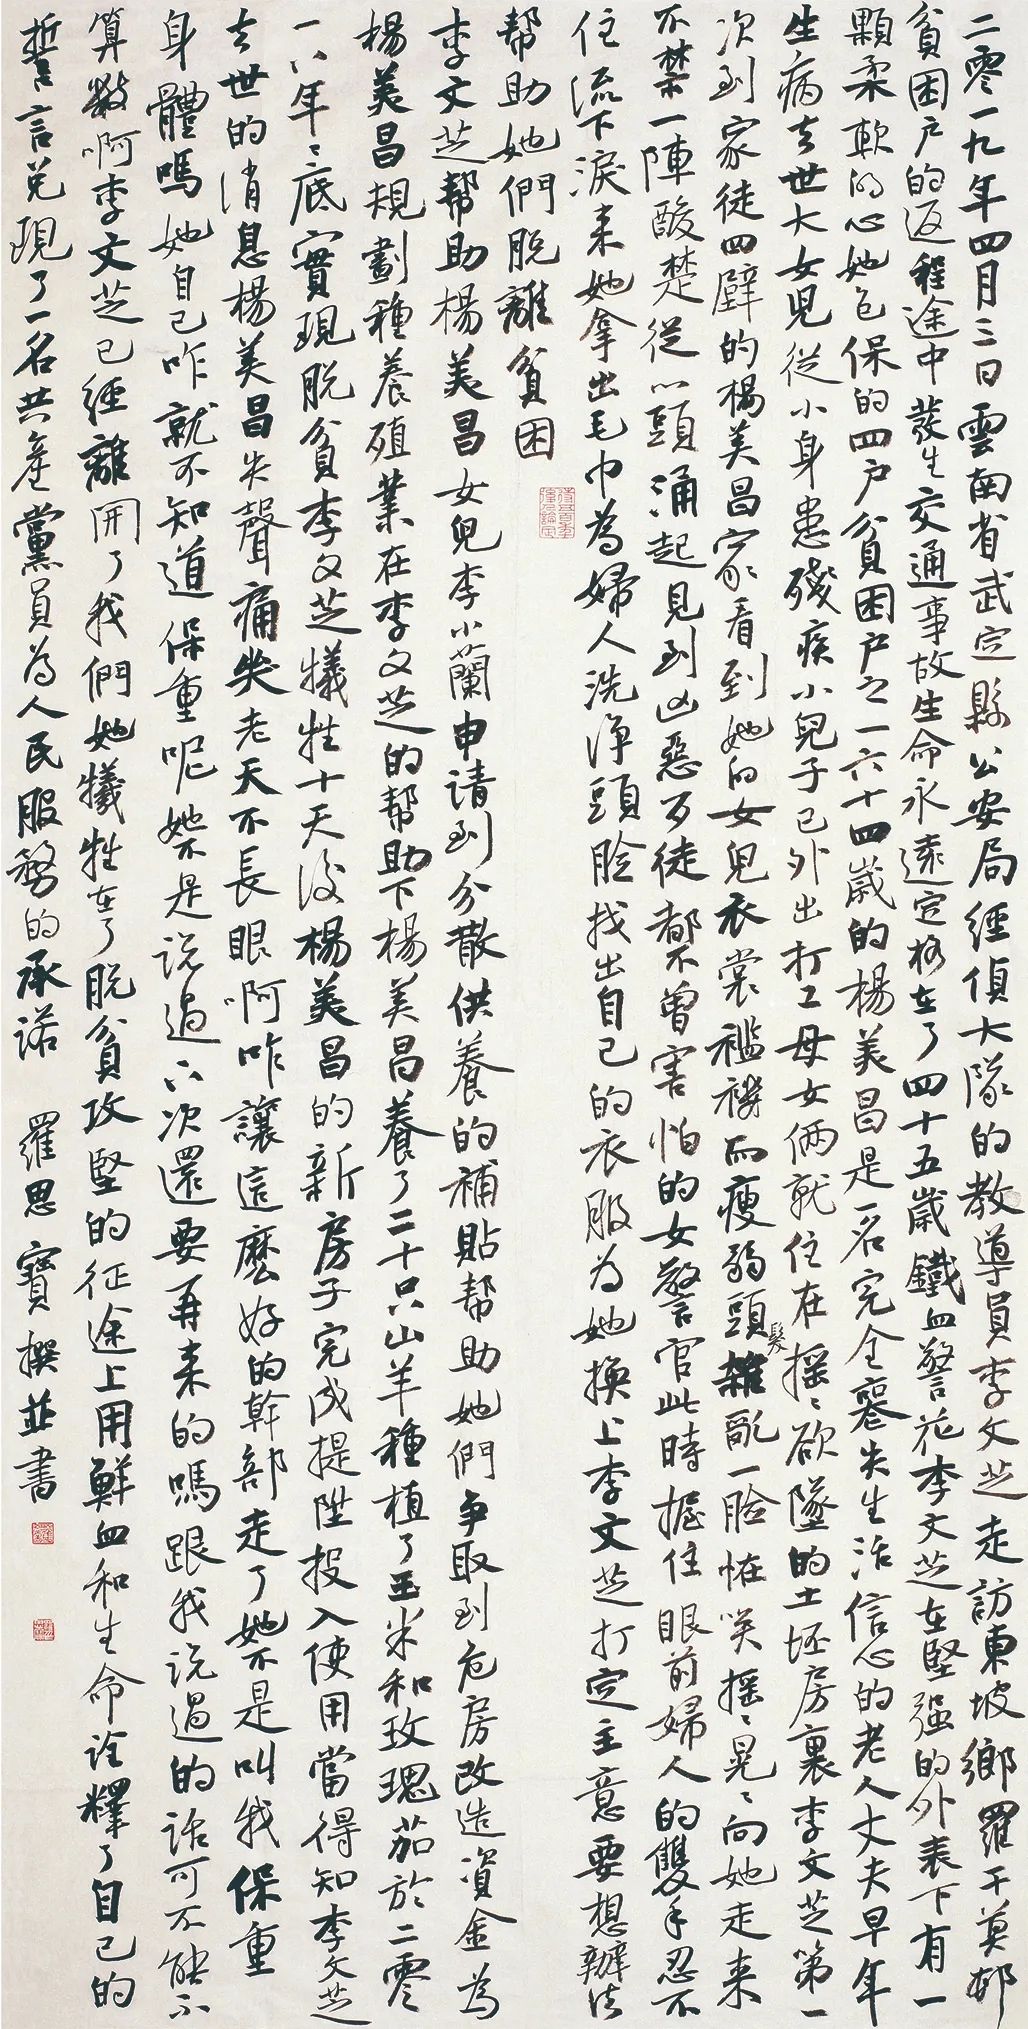 二零一九年四月三日雲南省武定縣公安局經偵大隊的教導員李文芝走訪東坡鄉羅干莫邨
貧困户的返程途中發生交通事故生命永遠定格在了四十五歲鐵血警花李文芝在堅强的外表下有一
顆柔軟的心她包保的四户貧困户之一六十四歲的楊美昌是一名完全喪失生活信心的老人丈夫早年
生病去世大女兒從小身患殘疾小兒子已外出打工母女倆就住在摇〻欲墜的土坯房裏李文芝第一
次到家徒四壁的楊美昌家看到她的女兒衣裳襤褸而瘦弱頭髮雜亂一臉怪笑摇〻晃〻向她走来
不禁一陣酸楚從心頭涌起見到凶惡歹徒都不曾害怕的女警官此時握住眼前婦人的雙手忍不
住流下淚来她拿出毛巾為婦人洗淨頭臉找出自己的衣服為她换上李文芝打定主意要想辦法
帮助她們脱離貧困
李文芝帮助楊美昌女兒李小蘭申请到分散供養的補貼帮助她們争取到危房改造資金為
楊美昌規劃種養殖業在李文芝的帮助下楊美昌養了二十只山羊種植了玉米和玫瑰茄於二零
一八年〻底實現脱貧李文芝犧牲十天後楊美昌的新房子完成提陞投入使用當得知李文芝
去世的消息楊美昌失聲痛哭老天不長眼啊咋讓這麽好的幹部走了她不是叫我保重
身體嗎她自己咋就不知道保重呢她不是说過六次還要再来的嗎跟我说過的话可不能不
算數啊李文芝已經離開了我們她犧牲在了脱貧攻堅的征途上用鮮血和生命诠釋了自己的
誓言兑現了一名共産黨員為人民服務的承诺 羅思寶撰並書